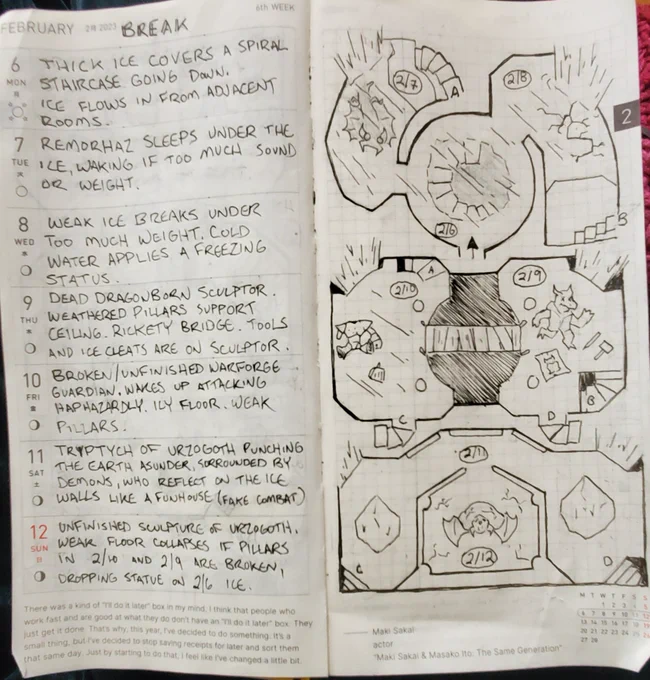 6th WEEK
FEBRUARY 2月 2023 BREAK
6 MON
THICK ICE COVERS A SPIRAL
STAIRCASE GOING DOWN.
ICE FLOWS IN FROM ADJACENT
ROOMS.
7 TUE
REMORHAZ SLEEPS UNDER THE
ICE, WAKING IF TOO MUCH SOUND
OR WEIGHT.
8 WED
WEAK ICE BREAKS UNDER
TOO MUCH WEIGHT. COLD
WATER APPLIES A FREEZING
STATUS.
9 THU
DEAD DRAGONBORN SCULPTOR.
WEATHERED PILLARS SUPPORT
CEILING. RICKETY BRIDGE. TOOLS
AND ICE CLEATS ARE ON SCULPTOR.
10 FRI
BROKEN/UNFINISHED WARFORGE
GUARDIAN. WAKES UP ATTACKING
HAPHAZARDLY. ICY FLOOR. WEAK
PILLARS.
11 SAT
TRYPTYCH OF URZOGOTH PUNCHING
THE EARTH ASUNDER, SORROUNDED BY
DEMONS, WHO REFLECT ON THE ICE
WALLS LIKE A FUNHOUSE (FAKE COMBAT)
12 SUN
UNFINISHED SCULPTURE OF URZOGOTH.
WEAK FLOOR COLLAPSES IF PILLARS
IN 2/10 AND 2/9 ARE BROKEN,
DROPPING STATUE ON 2/6 ICE.
There was a kind of "I'll do it later" box in my mind, I think that people who
work fast and are good at what they do don't have an "I'll do it later" box. They
just get it done. That's why, this year, I've decided to do something. It's a
small thing, but I've decided to stop saving receipts for later and sort them
that same day. Just by starting to do that, I feel like I've changed a little bit.
2/7
A
2/8
2
B
2/6
2/10
A
2/9
B
C
D
2/11
2/12
C
D
Maki Sakai
actor
"Maki Sakai & Masako Ito: The Same Generation"
M T W T F S S
1 2 3 4 5
6 7 8 9 10 11 12
13 14 15 16 17 18 19
20 21 22 23 24 25 26
27 28